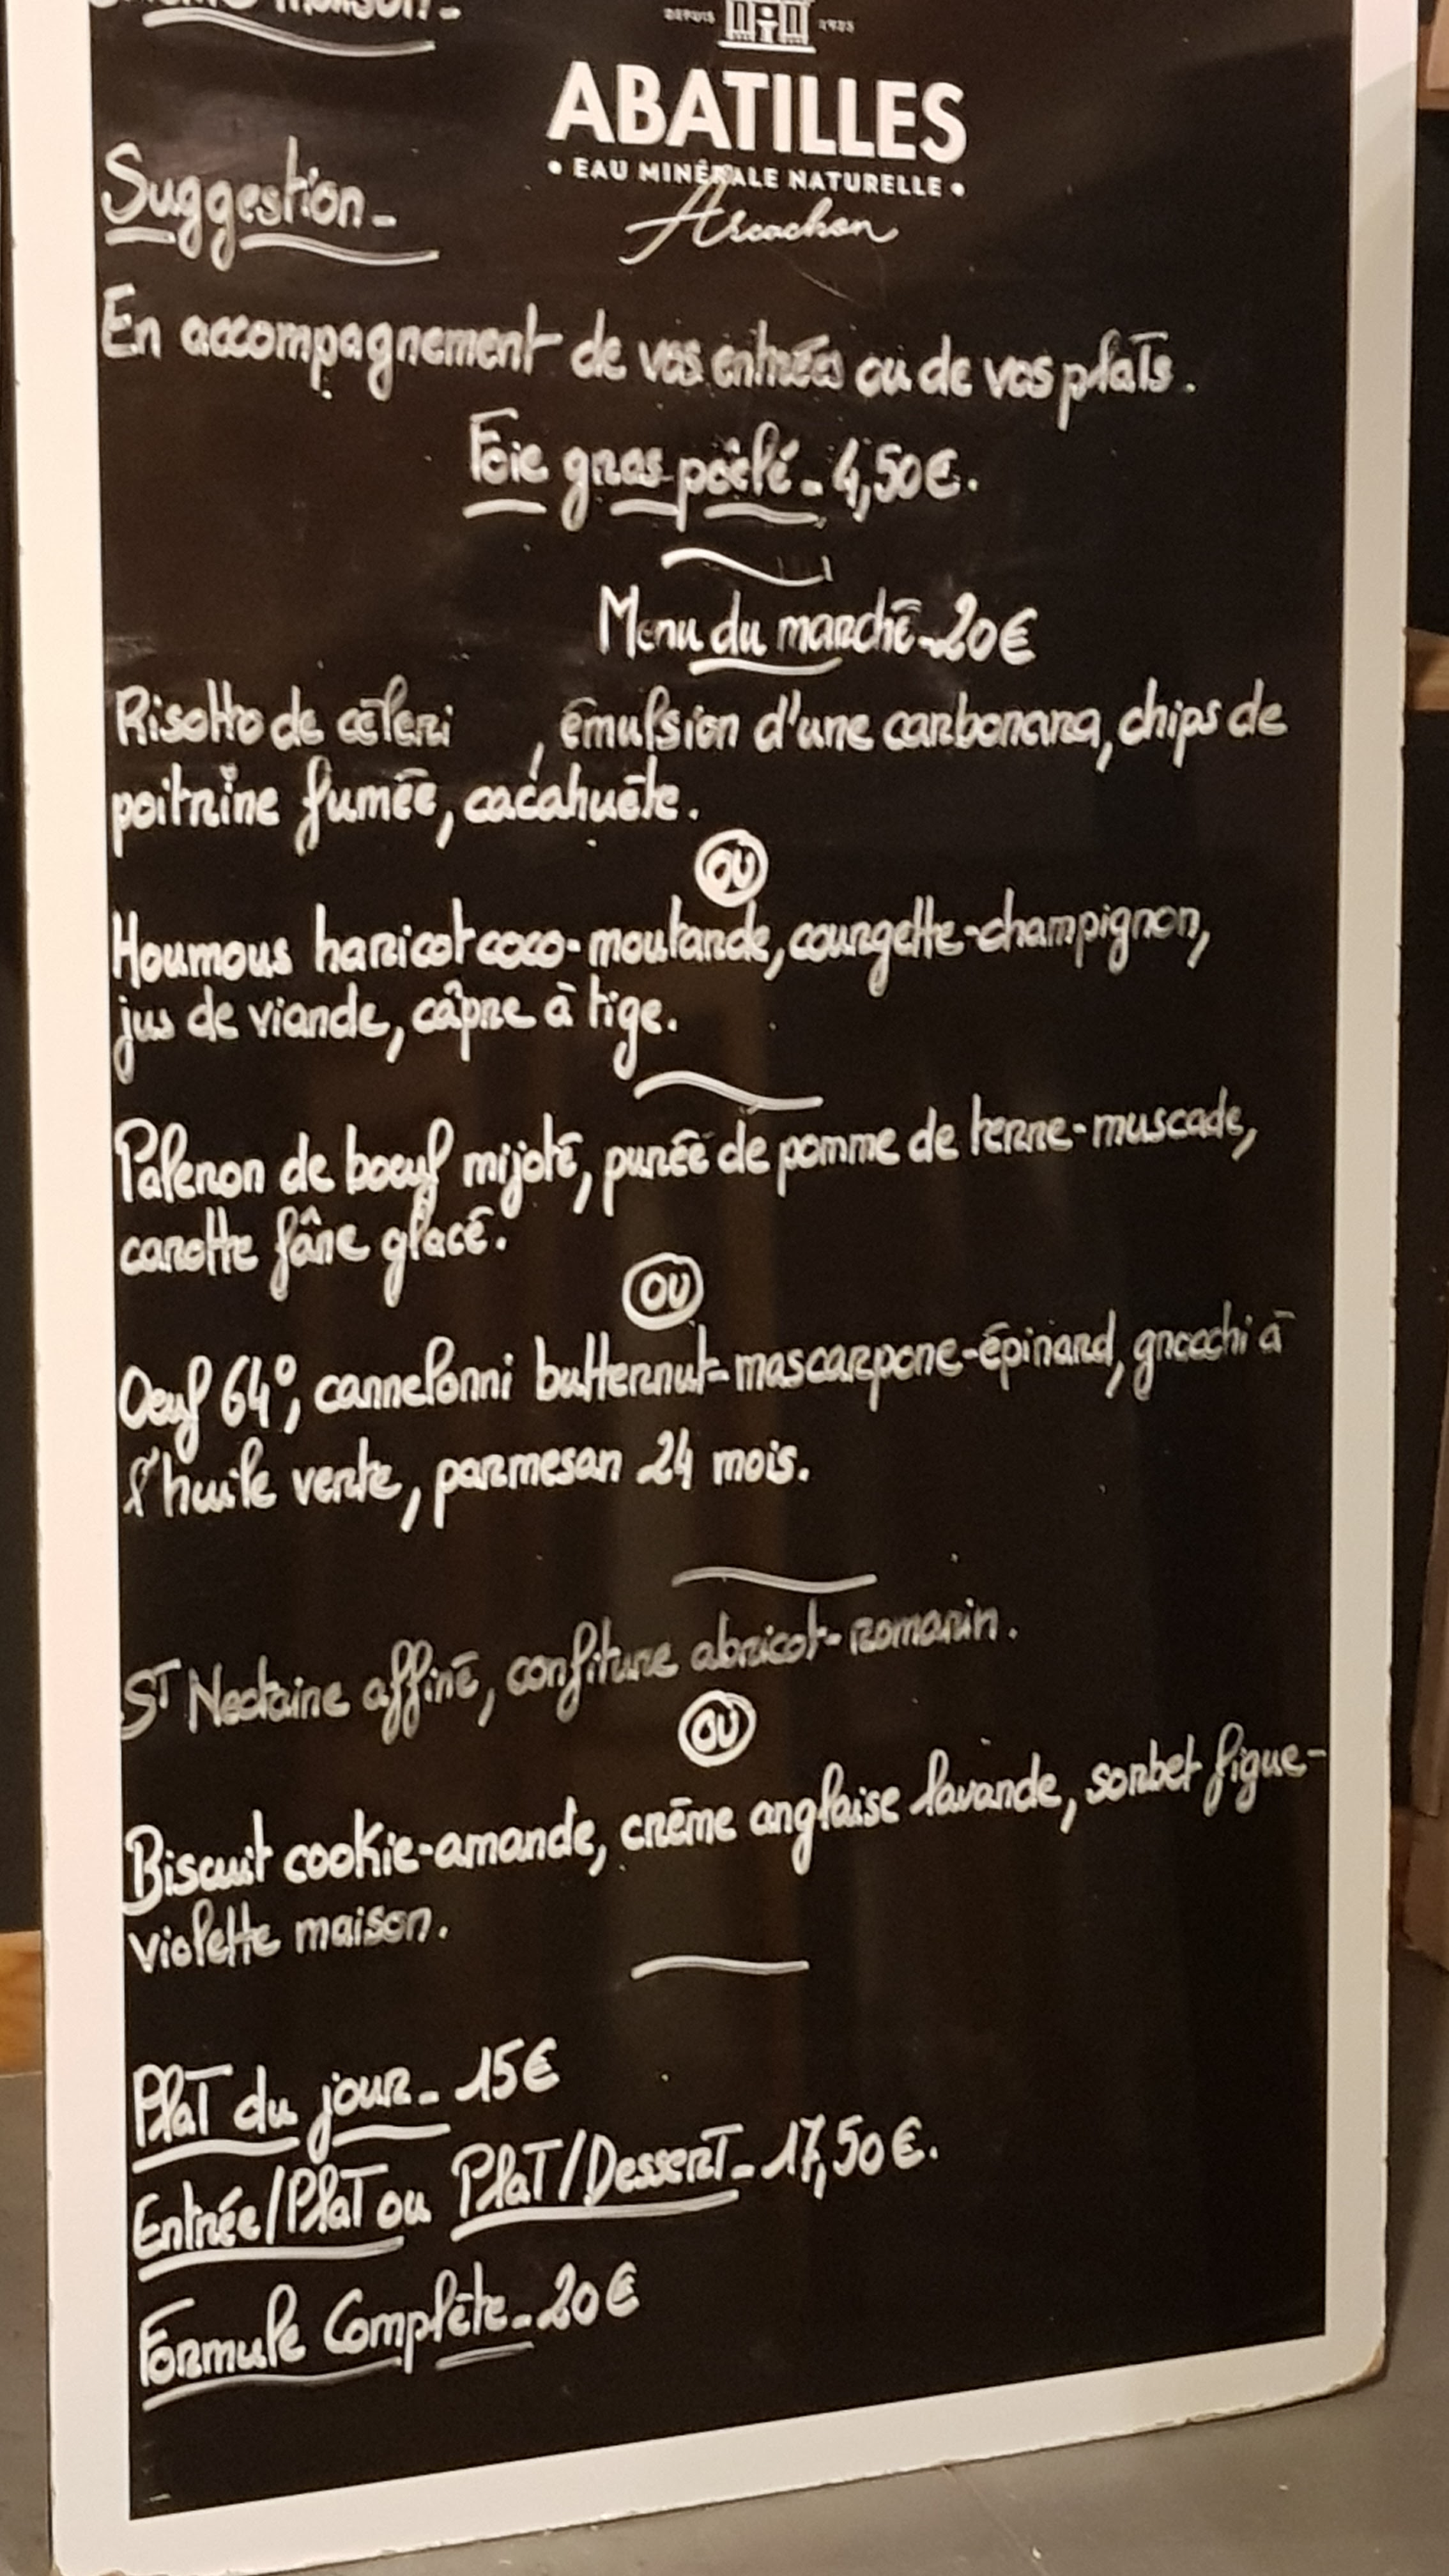 maison.-
DEPUIS 1925
ABATILLES
• EAU MINÉRALE NATURELLE •
Arcachon
Suggestion-
En accompagnement de vos entrées ou de vos plats.
Foie gras poêlé - 4,50€.
Menu du marché - 20€
Risotto de céleri , émulsion d'une carbonara, chips de
poitrine fumée, cacahuète.
OU
Houmous haricot coco-moutarde, courgette-champignon,
jus de viande, câpre à tige.
Paleron de boeuf mijoté, purée de pomme de terre-muscade,
carotte fâne glacé.
OU
Oeuf 64°, cannelonni butternut-mascarpone-épinard, gnocchi à
l'huile verte, parmesan 24 mois.
ST Nectaire affiné, confiture abricot-romarin.
OU
Biscuit cookie-amande, crème anglaise lavande, sorbet figue-
violette maison.
Plat du jour - 15€
Entrée/Plat ou Plat/Dessert - 17,50€.
Formule Complète - 20€